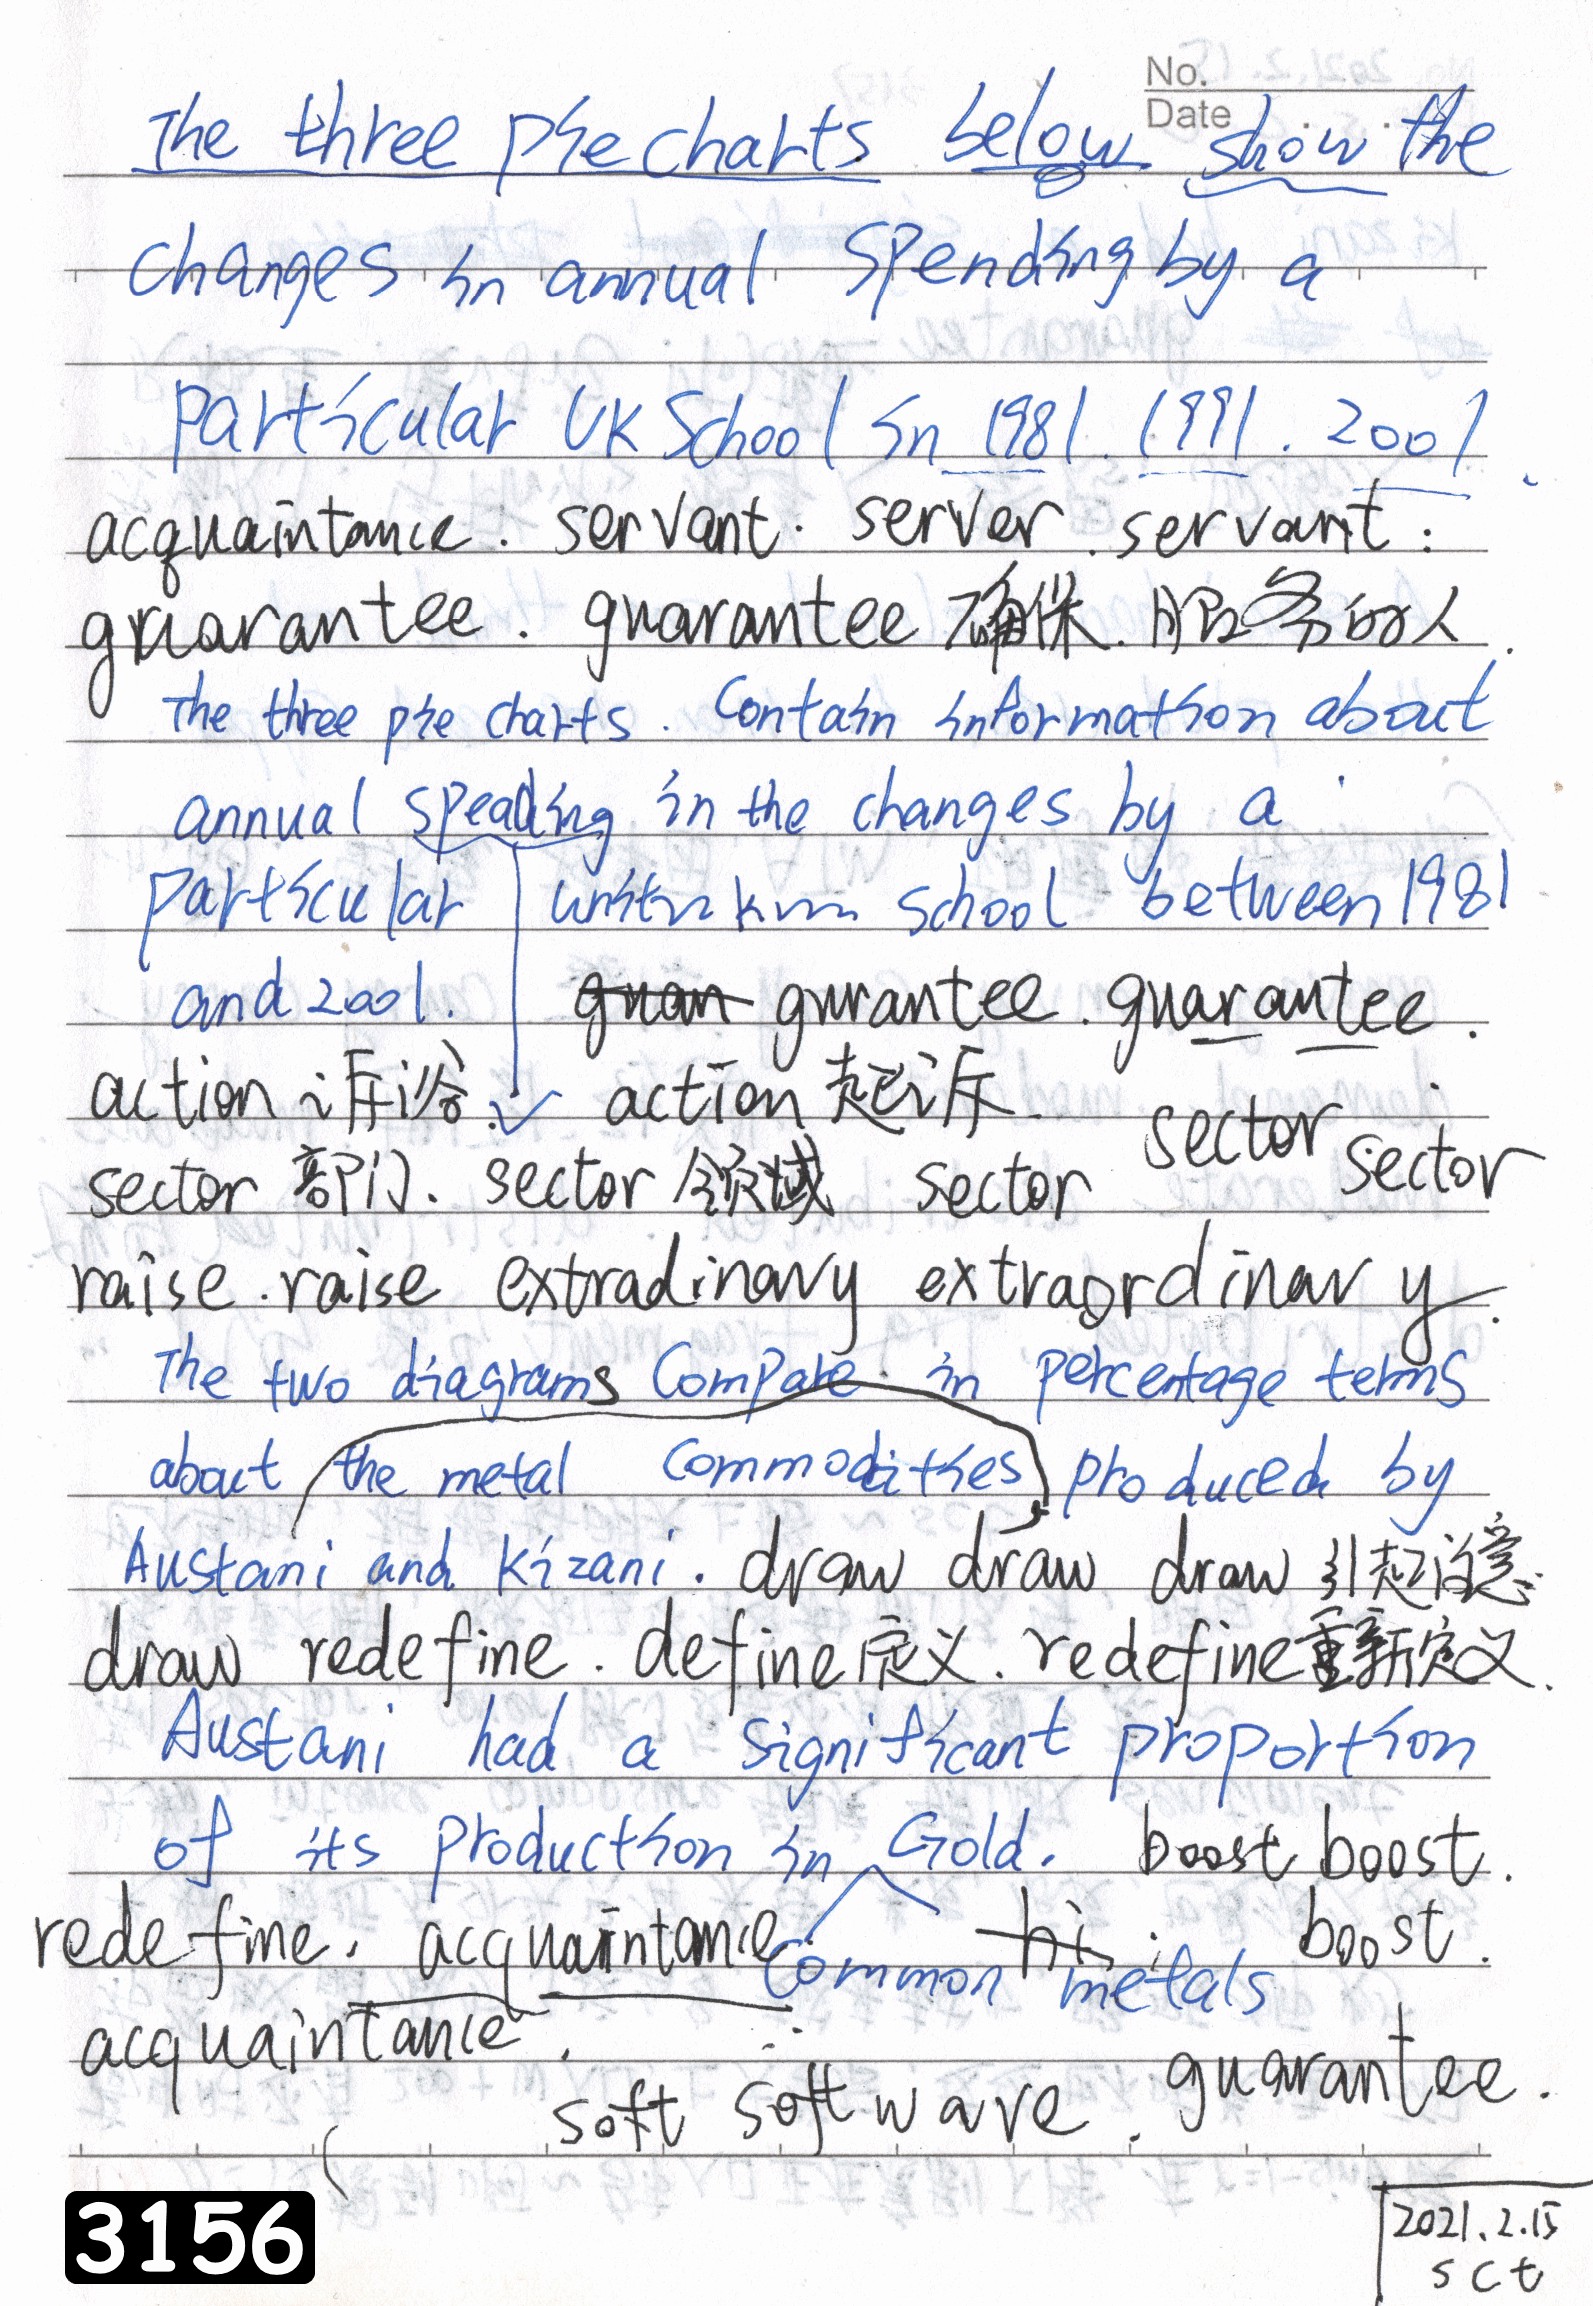 No.
Date
The three pie charts below show the
changes in annual spending by a
particular UK School in 1981. 1991. 2001.
acquaintance. servant. server. servant.
guarantee. guarantee 确保. 服务的人.
The three pie charts. Contain information about
annual speading in the changes by a
particular school between 1981
and 2001. guan gurantee. guarantee.
action 诉讼. action 起诉.
sector 部门. sector 领域 sector sector sector
raise. raise extradinary extraordinary.
The two diagrams Compare in percentage terms
about the metal Commodities produced by
Austani and Kizani. draw draw draw 引起注意
draw redefine. define 定义. redefine 重新定义.
Austani had a significant proportion
of its production in Gold. boost boost.
redefine. acquaintance. hi boost.
Common metals
acquaintance.
soft software. guarantee.
3156
2021.2.15
sct